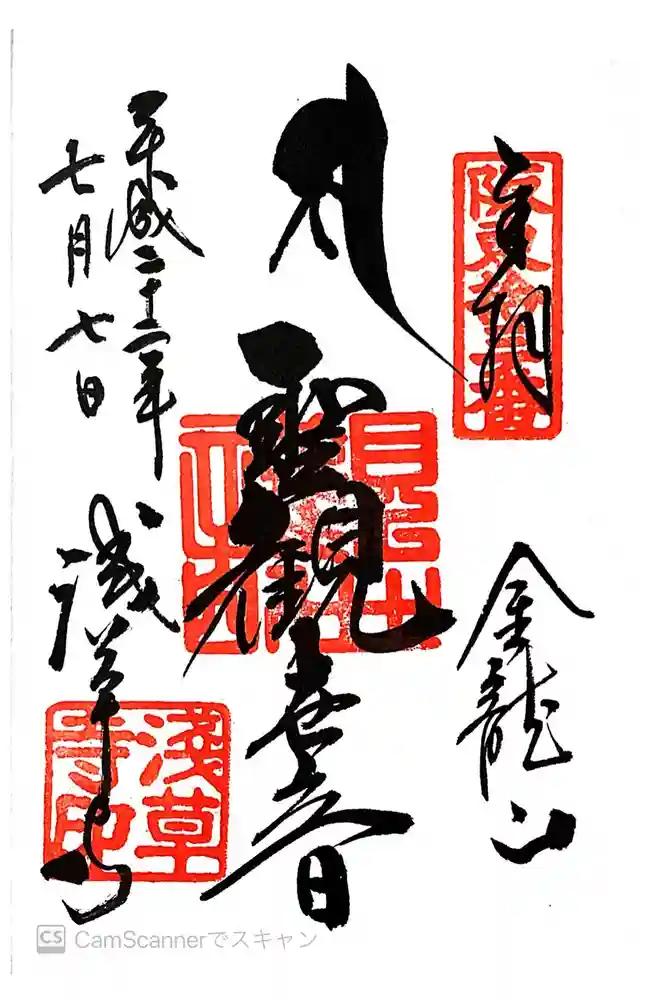 奉拝
阪東拾三番
金龍山
聖観世音
平成二十二年
七月七日
浅草寺
淺草寺印
CS CamScannerでスキャン